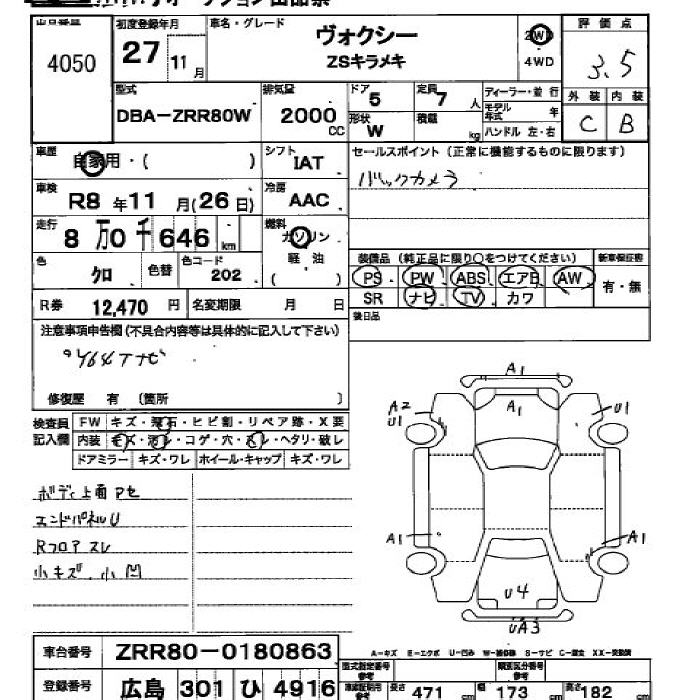 出品番号 初度登録年月 車名・グレード 評価点
4050 27 11月 ヴォクシー ZSキラメキ 2WD 4WD 3.5
型式 排気量 ドア 5 定員 7人 ディーラー・並行 外装 内装
DBA-ZRR80W 2000 CC 形状 W 積載 kg モデル年式 年 ハンドル 左・右 C B
車歴 自家用・( ) シフト IAT セールスポイント(正常に機能するものに限ります)
車検 R8年11月(26日) 冷房 AAC バックカメラ
走行 8万0千646km 燃料 ガソリン 軽油 ( )
色 クロ 色替 色コード 202 装備品(純正品に限り○をつけてください) 新車保証書
PS PW ABS エアB AW 有・無
SR ナビ TV カワ
R券 12,470円 名変期限 月 日 後日品
注意事項申告欄(不具合内容等は具体的に記入して下さい)
修復歴 有 〔箇所 〕
検査員記入欄 FW キズ・飛石・ヒビ割・リペア跡・X要
内装 キズ・汚レ・コゲ・穴・スレ・ヘタリ・破レ
ドアミラー キズ・ワレ ホイール・キャップ キズ・ワレ
ボディ上面 Pセ
エンドパネルU
Rフロア スレ
小キズ、小凹
A1
A2 U1 A1 U1
A1 A1
U4
UA3
A-キズ E-エクボ U-凹み W-補修跡 S-サビ C-腐食 XX-交換済
車台番号 ZRR80-0180863 型式指定番号 参考 類別区分番号 参考
登録番号 広島 301 ひ 4916 長さ 471 cm 幅 173 cm 高さ 182 cm